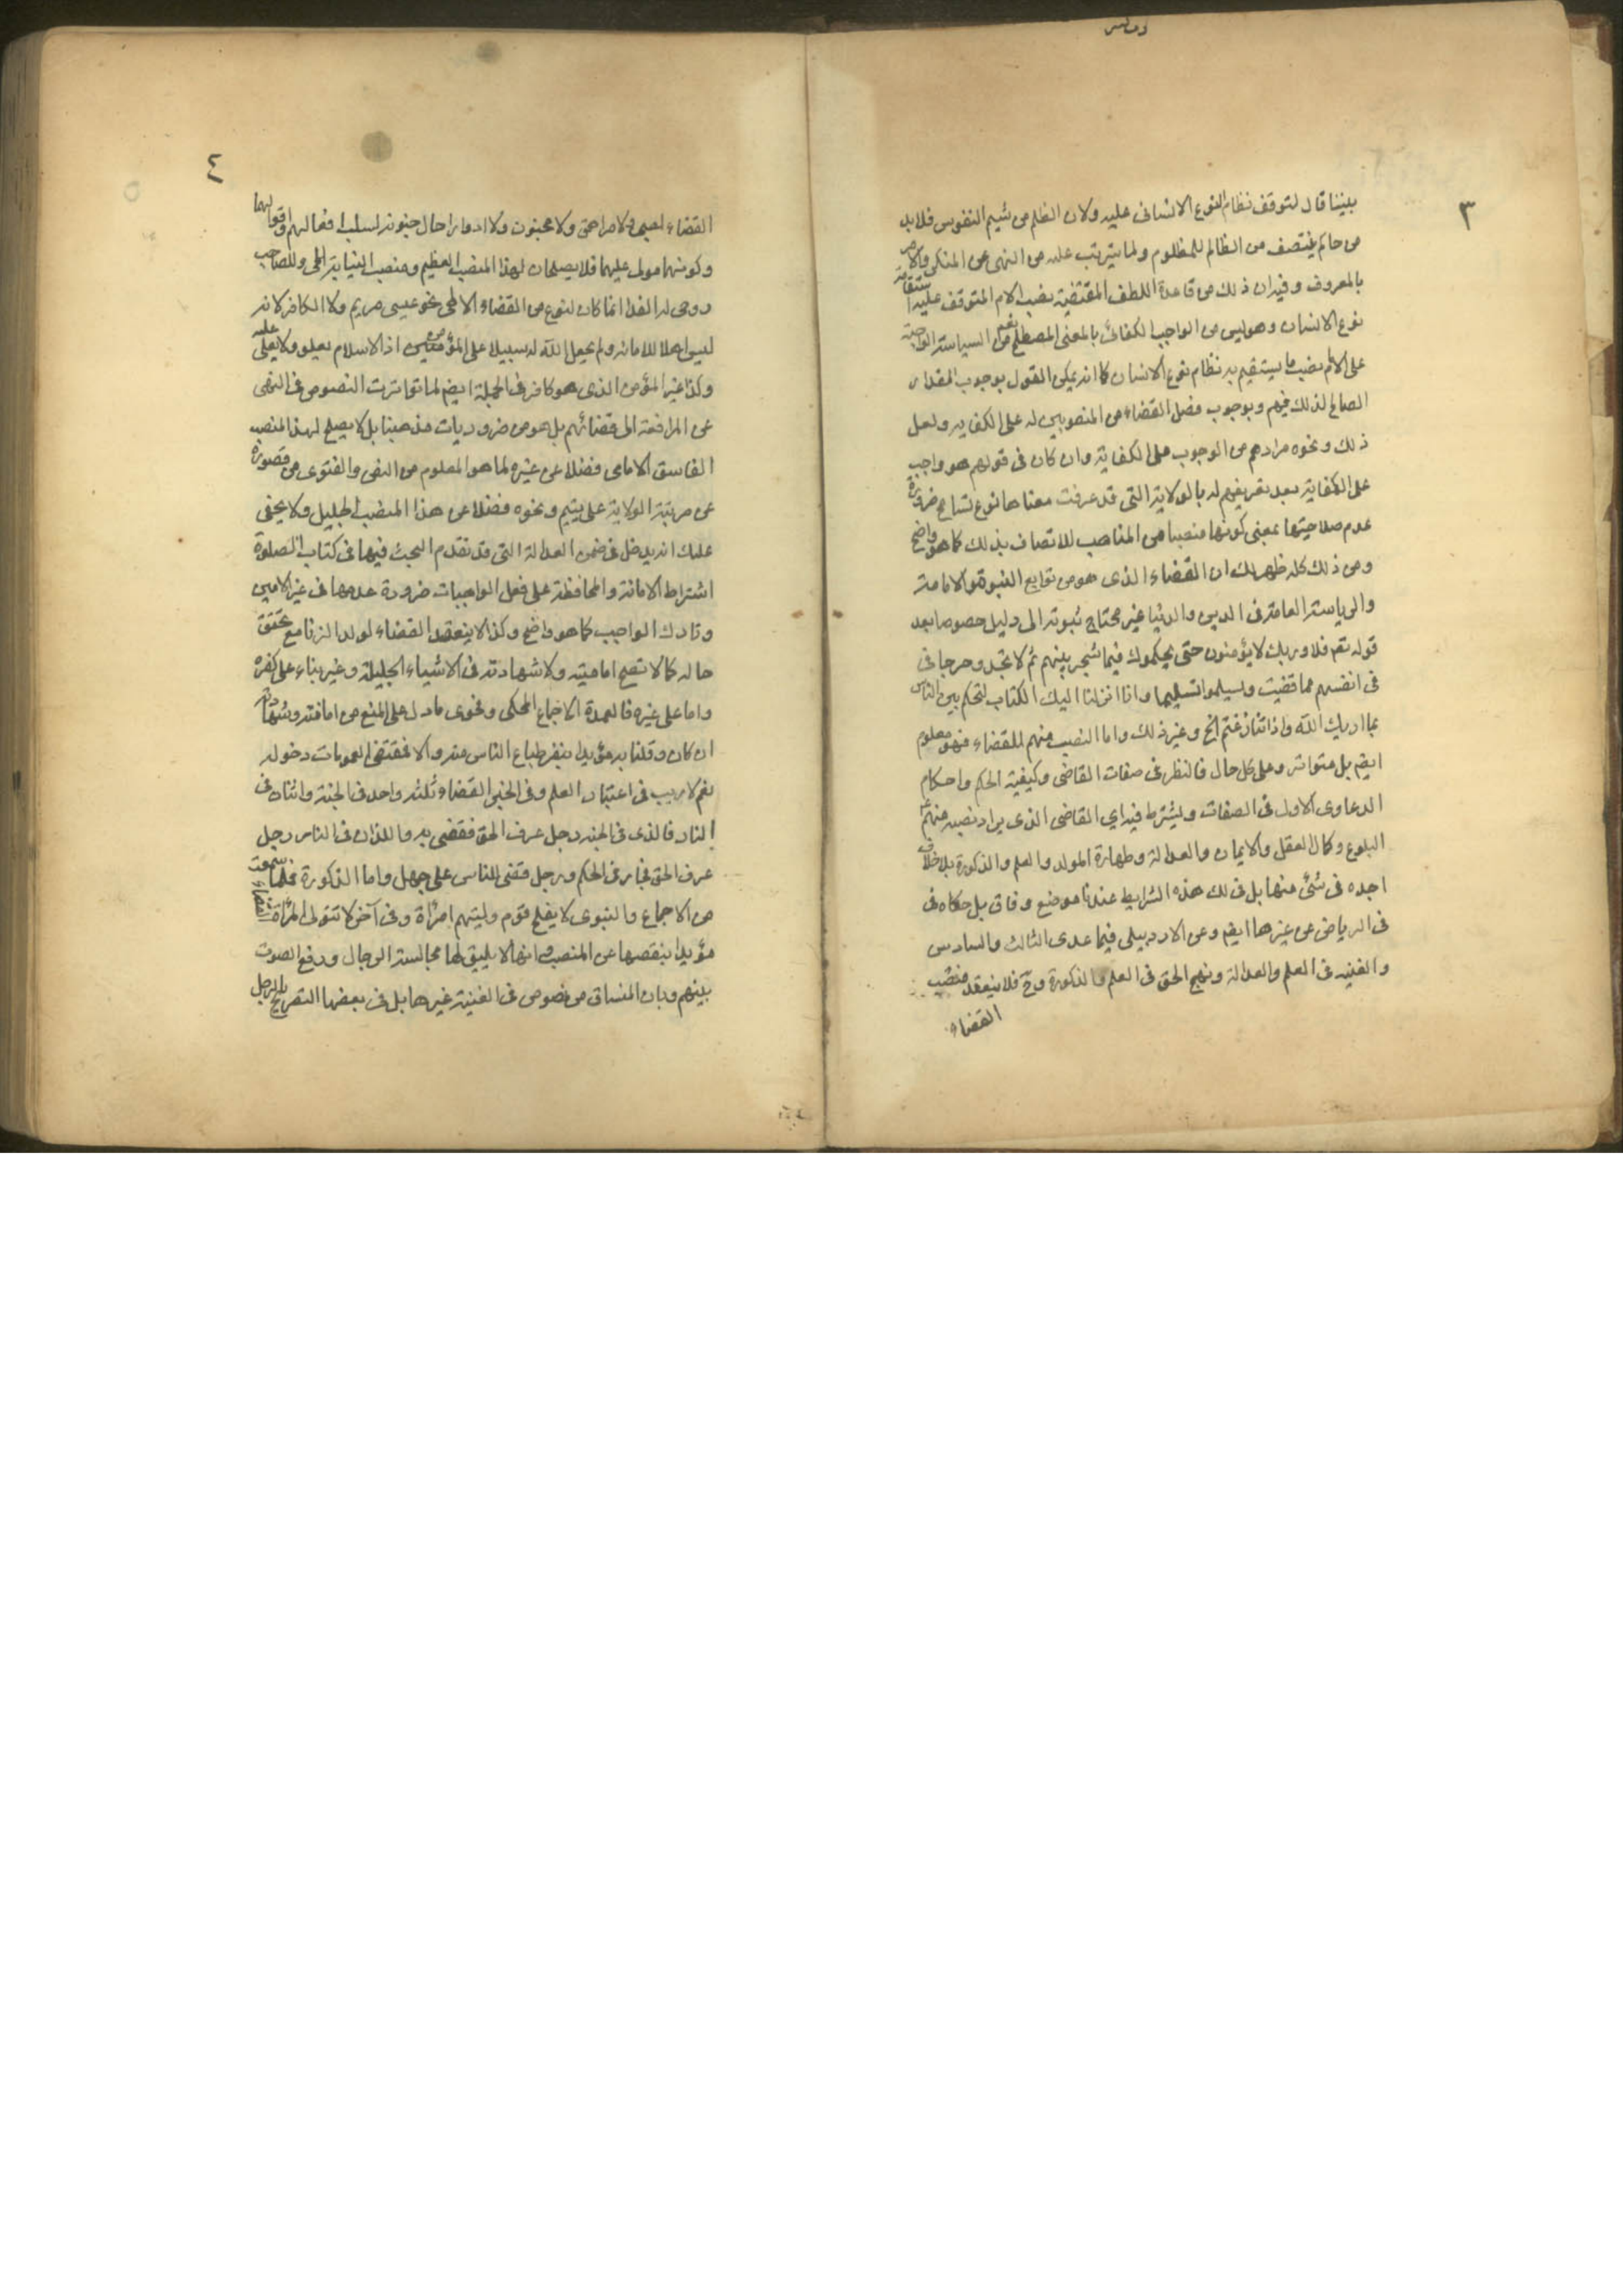 ٣
بيننا قال لتوقف نظام النوع الانساني عليه ولان الظلم من شيم النفوس فلا بد
من حاكم ينتصف من الظالم للمظلوم ولما يترتب عليه من النهى عن المنكر والامر
بالمعروف وفيه ان ذلك من قاعدة اللطف المقتضية نصب الامام المتوقف عليه استقامة
نوع الانسان وهو ليس من الواجب الكفائى بالمعنى المصطلح نعم من السياسة الواجبة
على الامام نصب ما يستقيم به نظام نوع الانسان كما انه يمكن القول بوجوب المقدار
الصالح لذلك فيهم وبوجوب فصل القضاء من المنصوبين له على الكفاية ولعل
ذلك ونحوه مرادهم من الوجوب على الكفاية وان كان فى قولهم هو واجب
على الكفاية بعد تعريفهم له بالولاية التى قد عرفت معناها نوع تسامح ضرورة
عدم صلاحيتها بمعنى كونها منصبا من المناصب للاتصاف بذلك كما هو واضح
ومن ذلك كله ظهر لك ان القضاء الذى هو من توابع النبوة والامامة
والرياسة العامة فى الدين والدنيا غير محتاج ثبوته الى دليل خصوصا بعد
قوله تعم فلا وربك لا يؤمنون حتى يحكموك فيما شجر بينهم ثم لا يجدوا حرجا فى
فى انفسهم مما قضيت ويسلموا تسليما وانا انزلنا اليك الكتاب لتحكم بين الناس
بما اريك الله واذا تنازعتم الخ وغير ذلك واما النصب منهم للقضاء فهو معلوم
ايضم بل متواتر وعلى كل حال فالنظر فى صفات القاضى وكيفية الحكم واحكام
الدعاوى الاول فى الصفات ويشترط فيه اي القاضى الذى يراد نصبه منهم ع
البلوغ وكمال العقل والايمان والعدالة وطهارة المولد والعلم والذكورة بلا خلاف
اجده فى شئ منها بل فى لك هذه الشرايط عندنا موضع وفاق بل حكاه فى
فى الرياض عن غيرها ايضم وعن الاردبيلى فيما عدى الثالث والسادس
والغنيه فى العلم والعدالة ونهج الحق فى العلم والذكورة وح فلا ينعقد منصب
القضاء
٤
القضاء لصبى ولا مراهق ولا مجنون ولا ادوارا حال جنونه لسلب افعالهم واقوالهما
وكونهما مولى عليهما فلا يصلحان لهذا المنصب العظيم ومنصب النيابة الحى ولصاحب
روحى له الفدا انما كان لنوع من القضاء الالهى نحو عيسى مريم ولا الكافر لانه
ليس اهلا للامانة ولم يجعل الله له سبيلا على المؤمنين اذ الاسلام يعلو ولا يعلى عليه
وكذا غير المؤمن الذى هو كافر فى الجملة ايضم لما تواترت النصوص فى النهى
عن المرافعة الى قضائهم بل هو من ضروريات مذهبنا بل لا يصلح لهذا المنصب
الفاسق الامامى فضلا عن غيره لما هو المعلوم من النص والفتوى من قصوره
عن مرتبة الولاية على يتيم ونحوه فضلا عن هذا المنصب الجليل ولا يخفى
عليك انه يدخل فى ضمن العدالة التى قد تقدم البحث فيها فى كتاب الصلوة
اشتراط الامانة والمحافظة على فعل الواجبات ضرورة عدمها فى غير الامين
وتارك الواجب كما هو واضح وكذا لا ينعقد القضاء لولد الزنا مع تحقق
حاله كما لا تصح امامته ولا شهادته فى الاشياء الجليلة وغيره بناء على كفره
واما على غيره فالعمدة الاجماع المحكى وفحوى ما دل على المنع من امامته وشهادته
ان كان وقلنا به مؤيدا بنفر طباع الناس منه والا فمقتضى العمومات دخوله
نعم لا ريب فى اعتبار العلم وفى الخبر القضاء ثلثه واحد فى الجنة واثنان فى
النار فالذى فى الجنه رجل عرف الحق فقضى به واللذان فى النار رجل
عرف الحق فجار فى الحكم ورجل قضى للناس على جهل واما الذكورة فلما سمعت
من الاجماع والنبوى لا يفلح قوم وليتهم امرأة وفى آخر لا تتولى المرأة القضاء
مؤيدا بنقصها عن المنصب وانها لا يليق لها مجالسة الرجال ورفع الصوت
بينهم وبان المنساق من نصوص فى الغيبة غيرها بل فى بعضها التصريح بالرجل